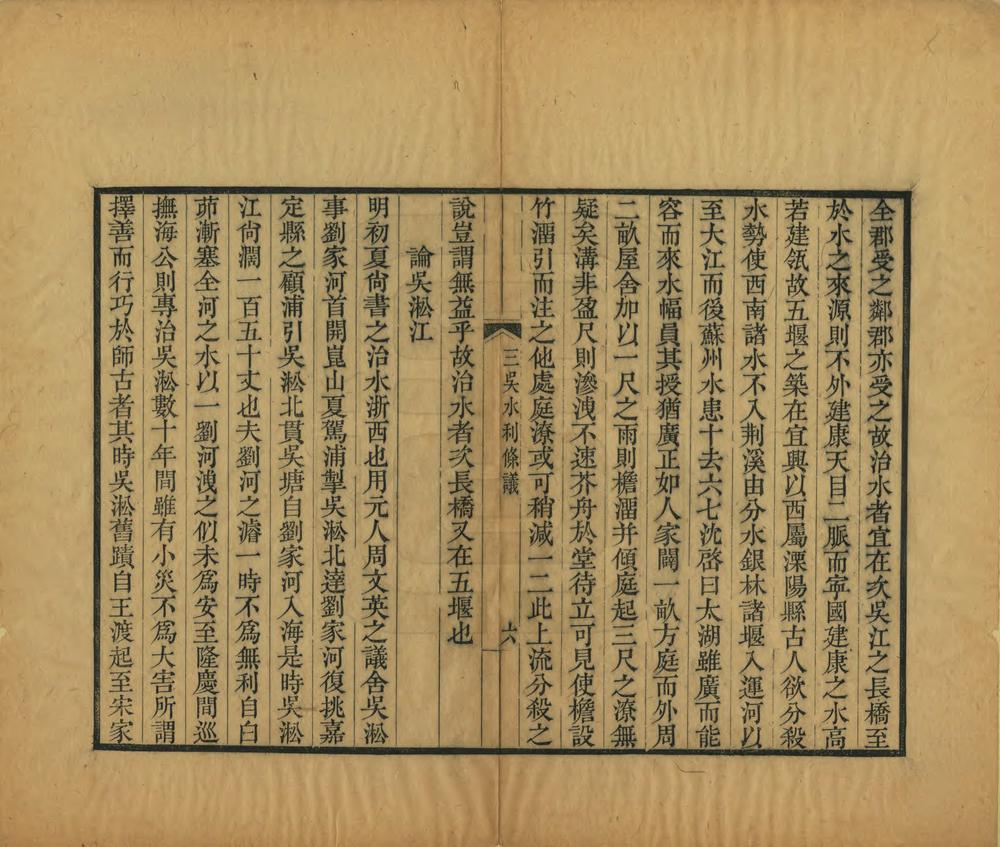 全郡受之鄰郡亦受之故治水者宜在次吳江之長橋至
於水之來源則不外建康天目二脈而寧國建康之水高
若建瓴故五堰之築在宜興以西屬溧陽縣古人欲分殺
水勢使西南諸水不入荆溪由分水銀林諸堰入運河以
至大江而後蘇州水患十去六七沈啓曰太湖雖廣而能
容而來水幅員其授猶廣正如人家闢一畝方庭而外周
二畝屋舍加以一尺之雨則檐溜并傾庭起三尺之潦無
疑矣溝非盈尺則滲洩不速芥舟於堂待立可見使檐設
竹溜引而注之他處庭潦或可稍減一二此上流分殺之
三吳水利條議
六
說豈謂無益乎故治水者次長橋又在五堰也
論吳淞江
明初夏尙書之治水浙西也用元人周文英之議舍吳淞
事劉家河首開崑山夏駕浦掣吳淞北達劉家河復挑嘉
定縣之顧浦引吳淞北貫吳塘自劉家河入海是時吳淞
江尙濶一百五十丈也夫劉河之濬一時不爲無利自白
茆漸塞全河之水以一劉河洩之似未爲安至隆慶間巡
撫海公則專治吳淞數十年間雖有小災不爲大害所謂
擇善而行巧於師古者其時吳淞舊蹟自王渡起至宋家